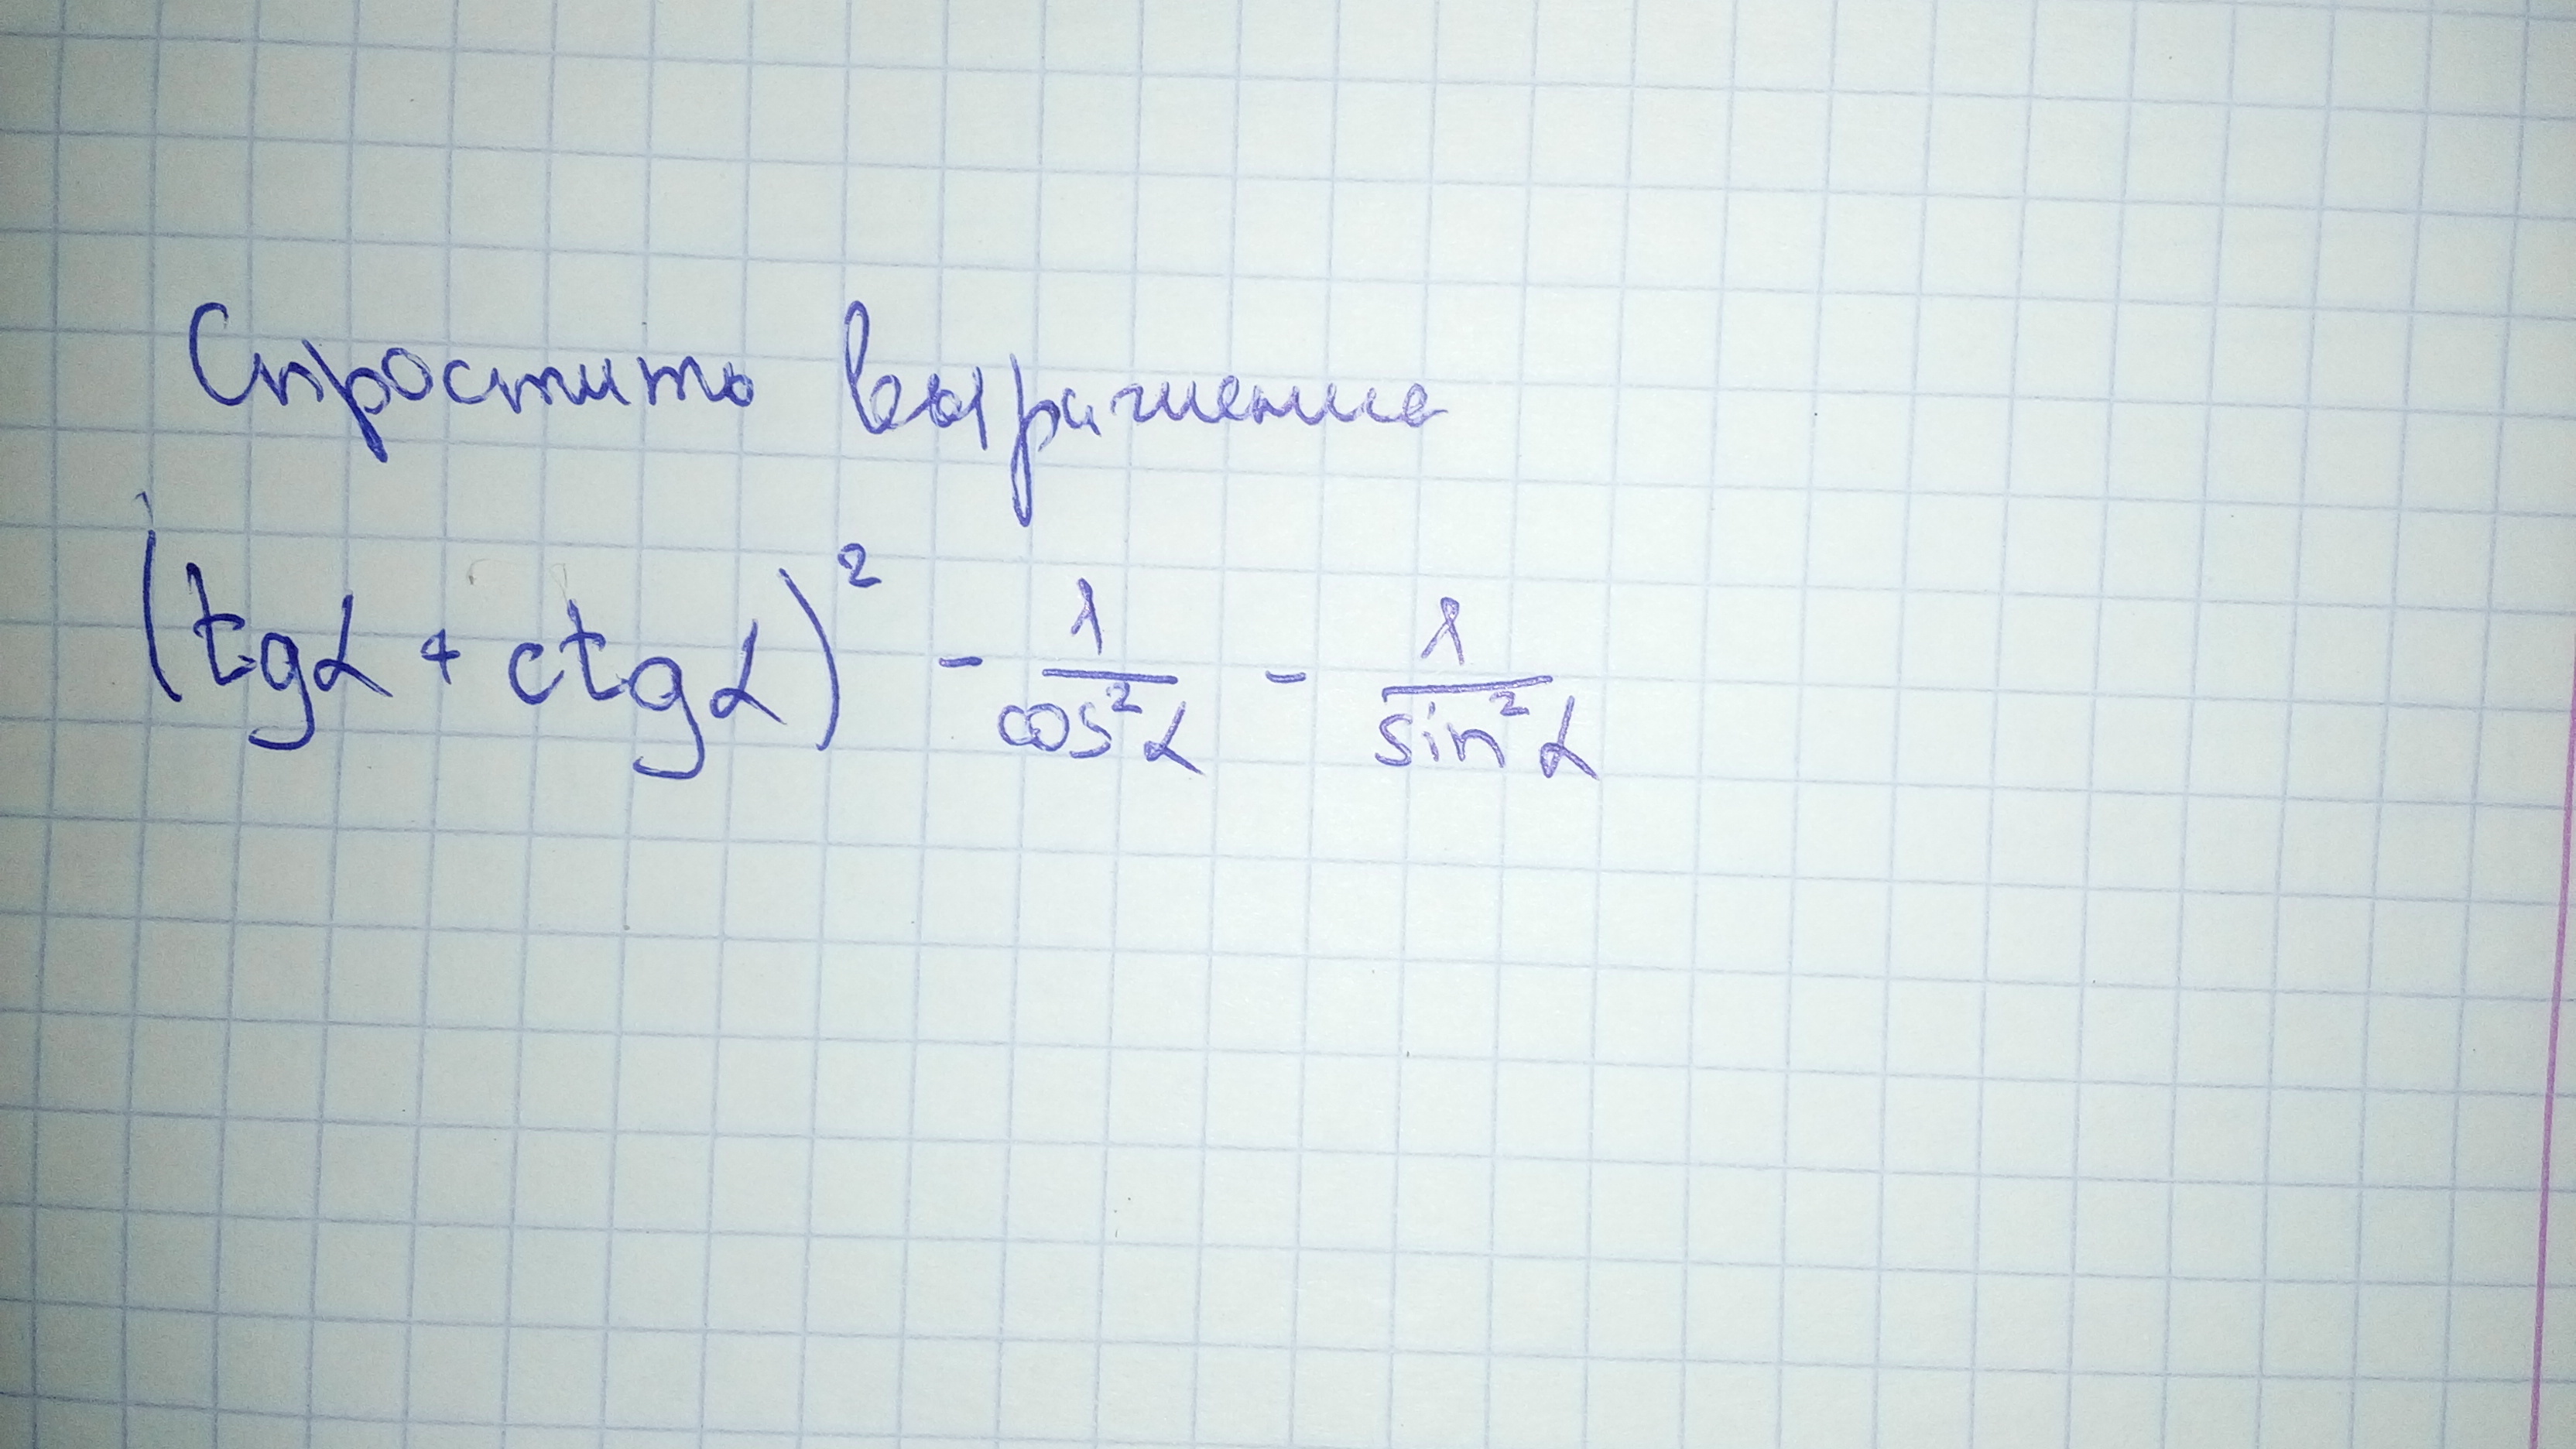 Спростить выражение
(tgα + ctgα)² - 1/cos²α - 1/sin²α